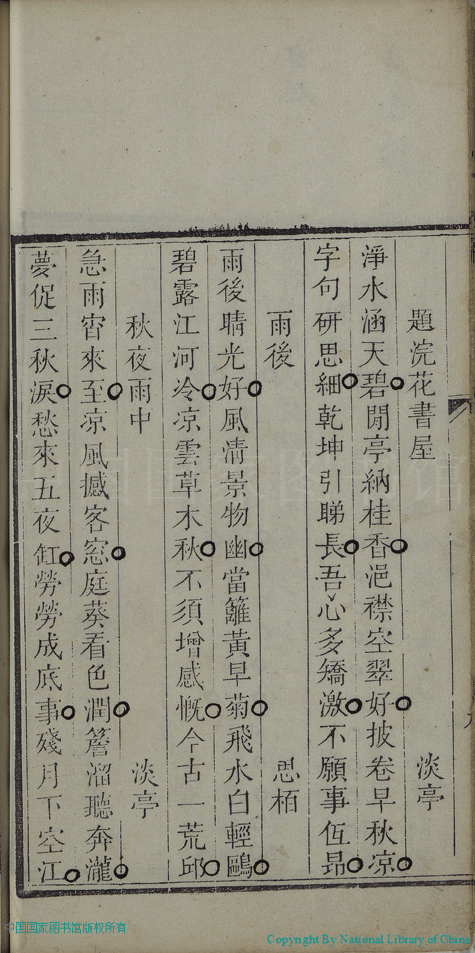 題浣花書屋 淡亭
淨水涵天碧閒亭納桂香浥襟空翠好披卷早秋凉
字句研思細乾坤引睇長吾心多矯激不願事伍昂
雨後 思栢
雨後晴光好風清景物幽當籬黃早菊飛水白輕鷗
碧露江河冷凉雲草木秋不須增感慨今古一荒邱
秋夜雨中 淡亭
急雨宵來至凉風撼客窓庭葵看色潤簷溜聽奔瀧
夢促三秋淚愁來五夜缸勞勞成底事殘月下空江
中国国家图书馆版权所有
Copyright By National Library of China